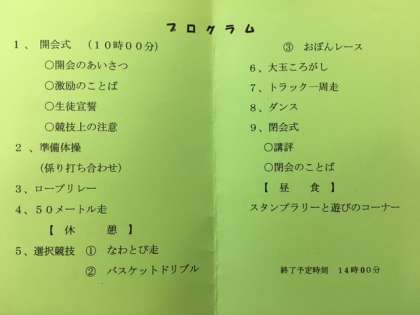 プログラム
1、 開会式 （10時00分）
○開会のあいさつ
○激励のことば
○生徒宣誓
○競技上の注意
2、準備体操
（係り打ち合わせ）
3、ロープリレー
4、50メートル走
【 休 憩 】
5、選択競技 ① なわとび走
② バスケットドリブル
③ おぼんレース
6、大玉ころがし
7、トラック一周走
8、ダンス
9、閉会式
○講評
○閉会のことば
【 昼 食 】
スタンプラリーと遊びのコーナー
終了予定時刻 14時00分